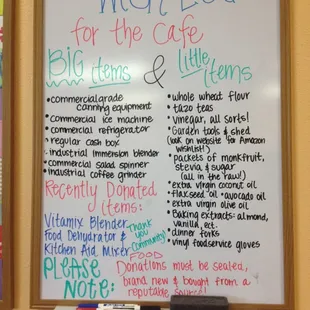 for the Cafe
BIG items & little items
• commercial grade canning equipment
• commercial ice machine
• commercial refrigerator
• regular cash box
• industrial immersion blender
• commercial salad spinner
• industrial coffee grinder
Recently Donated
Items:
Vitamix Blender
Food Dehydrator &
Kitchen Aid Mixer
Thank
you
Community!
• whole wheat flour
• tazo teas
• vinegar, all sorts!
• Garden tools & shed
(look on website for Amazon
wishlist!)
• packets of monkfruit,
stevia, & sugar
(all in the raw!)
• extra virgin coconut oil
• flaxseed oil • avocado oil
• extra virgin olive oil
• Baking extracts: almond,
vanilla, ect.
• dinner forks
• vinyl foodservice gloves
Please
Note:
FOOD
Donations must be sealed,
brand new & bought from a
reputable source!